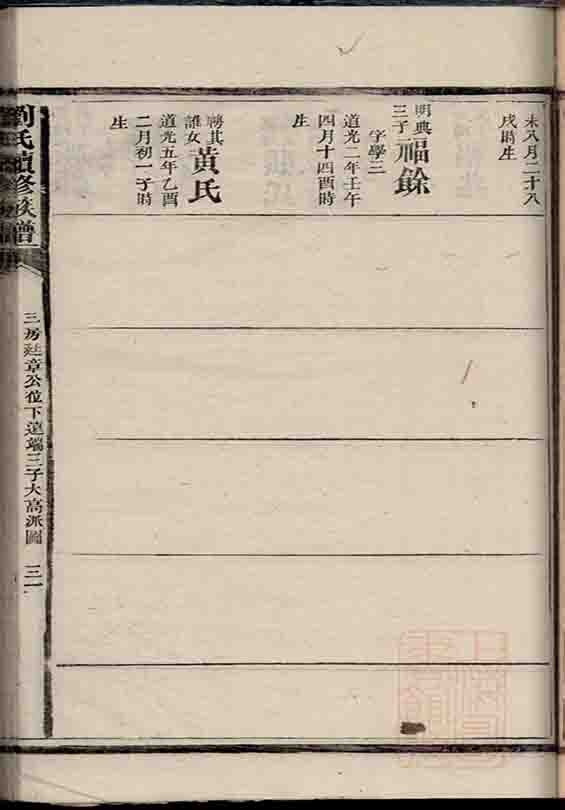 未八月二十八
戌時生
明典三子
福餘
字學三
道光二年壬午
四月十四酉時
生
聘其誰女
黃氏
道光五年乙酉
二月初一子時
生
劉氏續修族譜
三房廷章公位下達端三子大高派圖
三一